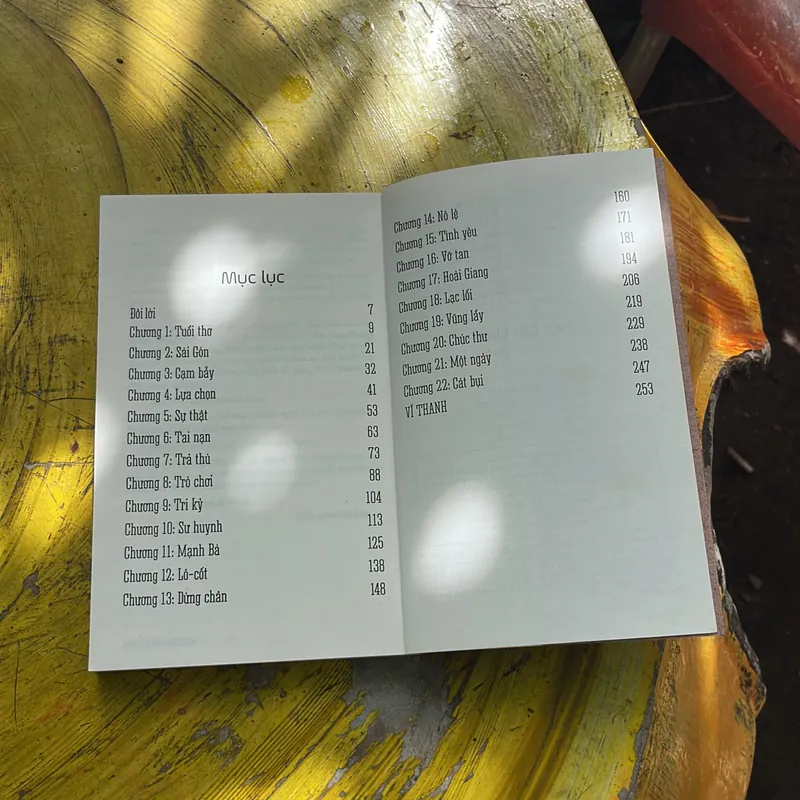 Mục lục
Đôi lời 7
Chương 1: Tuổi thơ 9
Chương 2: Sài Gòn 21
Chương 3: Cạm bẫy 32
Chương 4: Lựa chọn 41
Chương 5: Sự thật 53
Chương 6: Tai nạn 63
Chương 7: Trả thù 73
Chương 8: Trò chơi 88
Chương 9: Tri kỷ 104
Chương 10: Sư huynh 113
Chương 11: Mạnh Bà 125
Chương 12: Lô-cốt 138
Chương 13: Dừng chân 148
Chương 14: Nô lệ 160
Chương 15: Tình yêu 171
Chương 16: Vỡ tan 181
Chương 17: Hoài Giang 194
Chương 18: Lạc lối 206
Chương 19: Vũng lầy 219
Chương 20: Chúc thư 229
Chương 21: Một ngày 238
Chương 22: Cát bụi 247
VĨ THANH 253